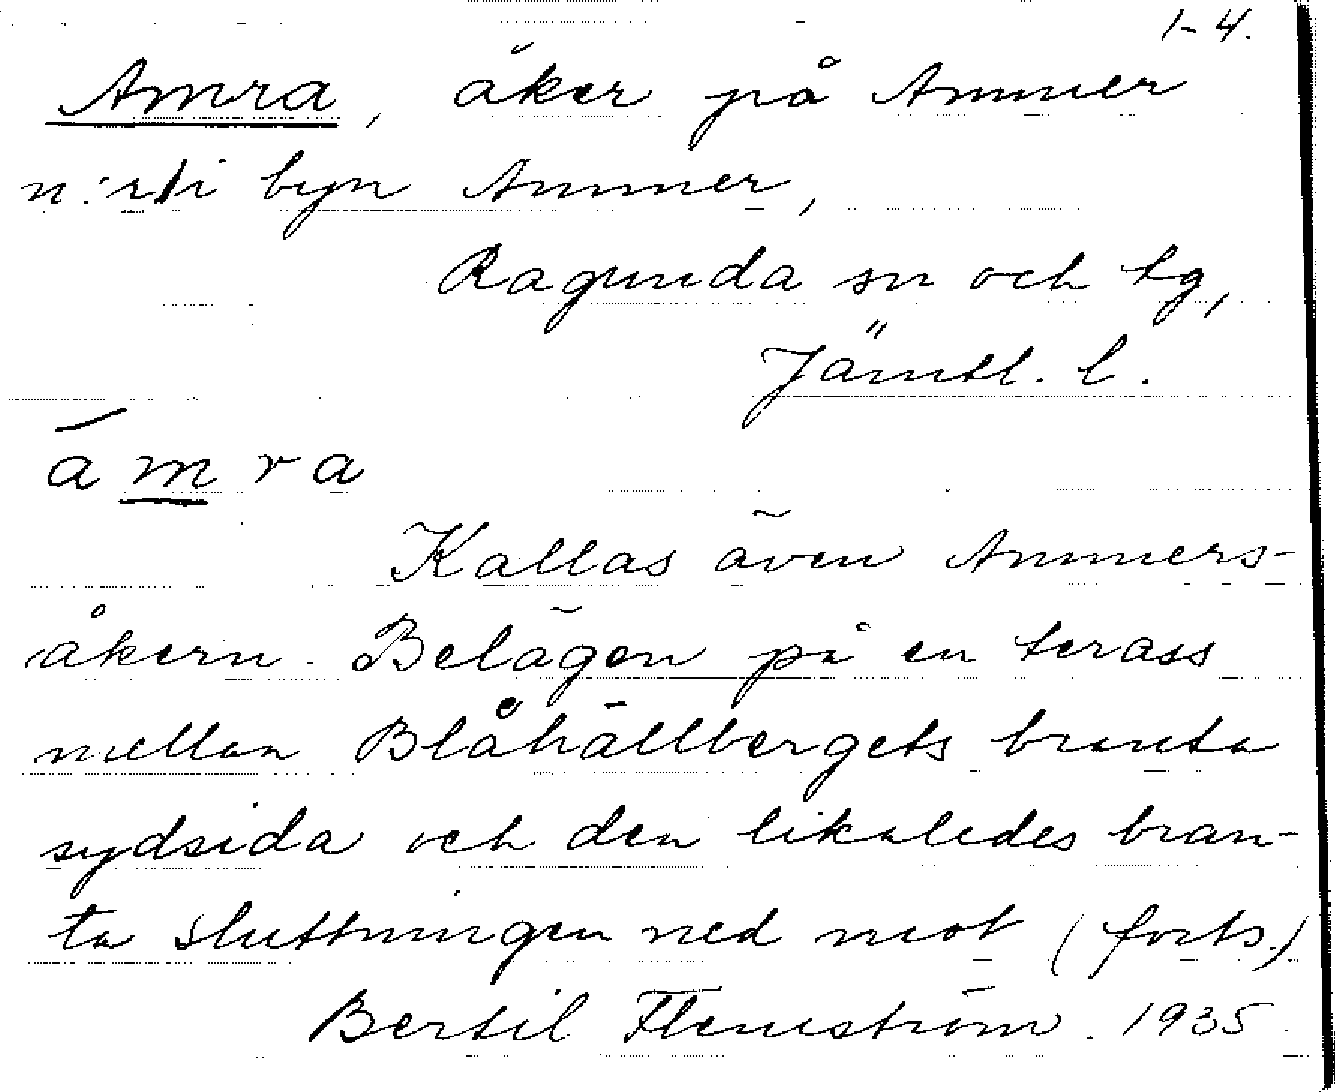 1-4.
Amra, åker på Ammer
n:r 1 i byn Ammer,
Ragunda sn och tg,
Jämtl. l.
ámra
Kallas även Ammers-
åkern. Belägen på en terass
mellan Blåhällbergets branta
sydsida och den likaledes bran-
ta sluttningen ned mot (forts.)
Bertil Flemström. 1935